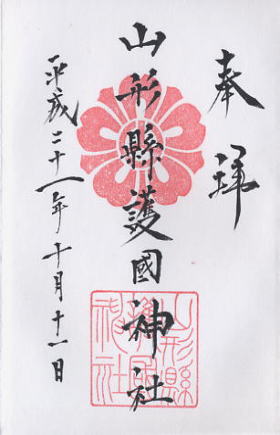 奉拝
山形縣護國神社
平成二十一年十月十一日
山形縣
護國
神社